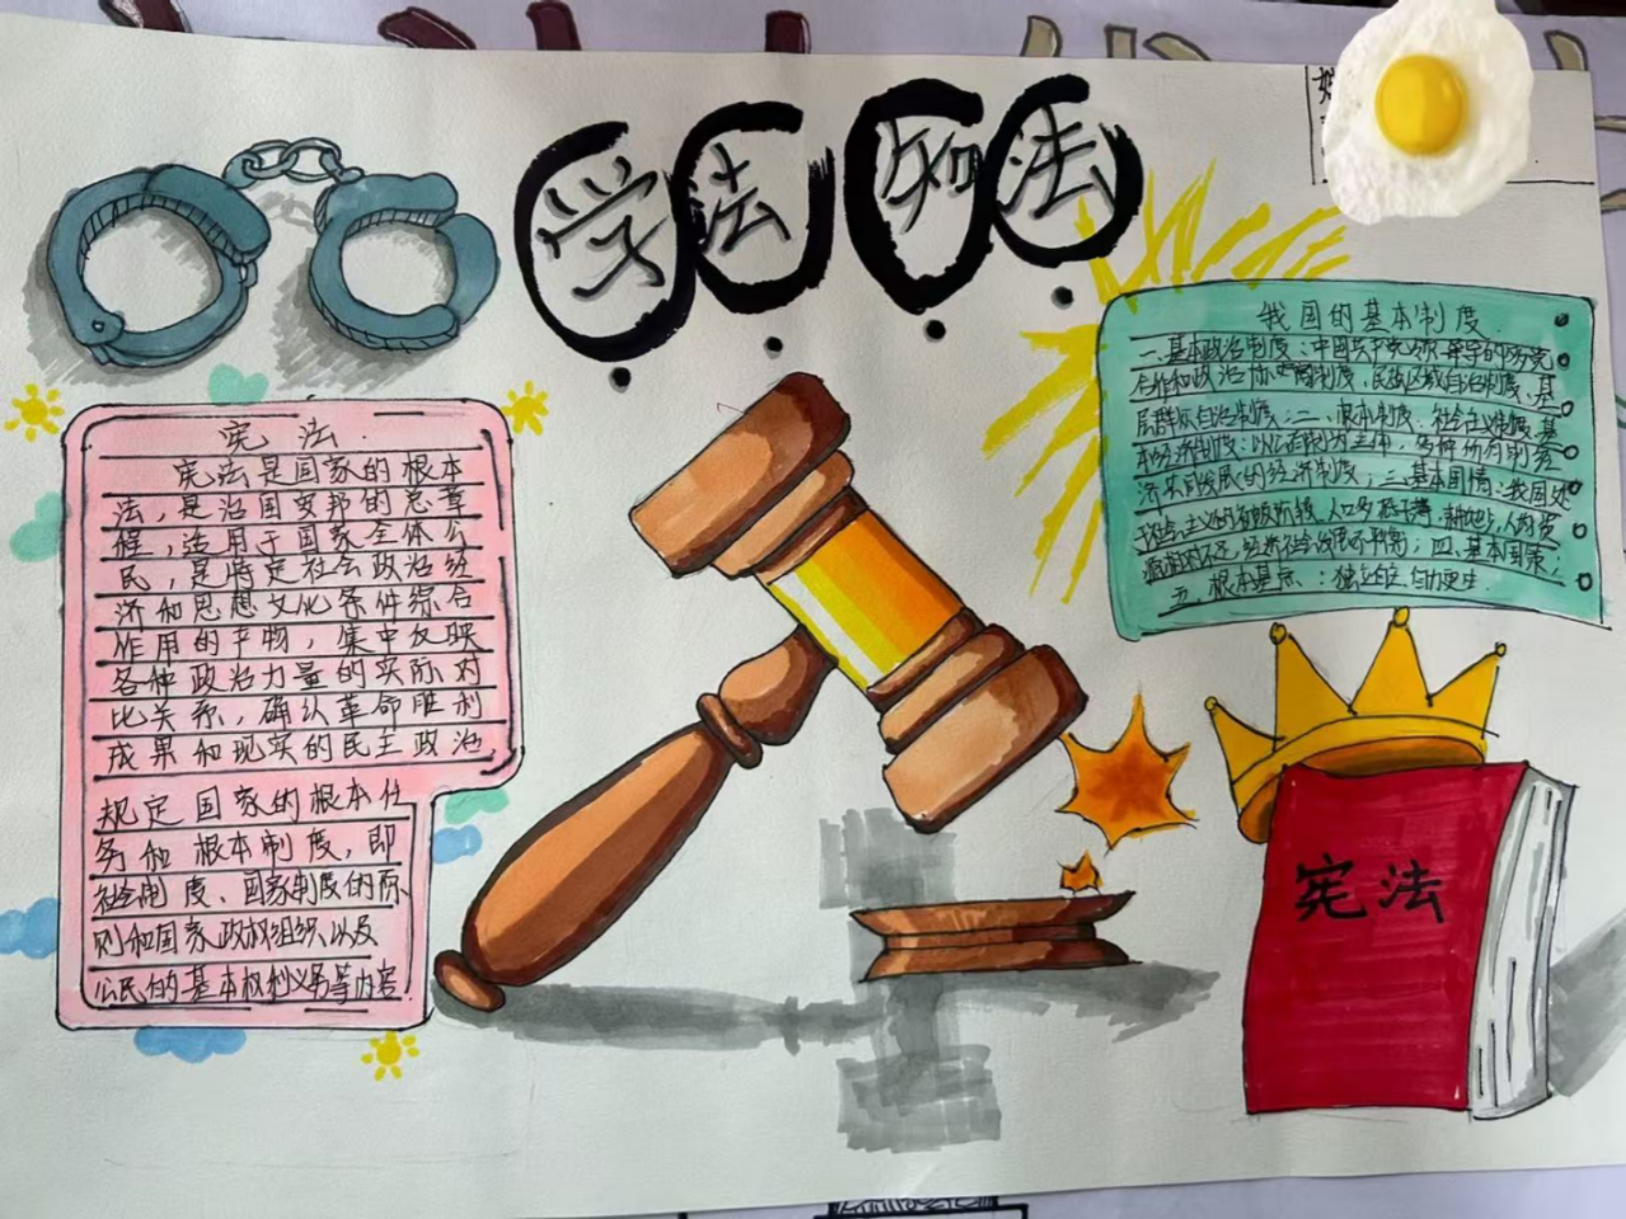 学法知法
宪法
宪法是国家的根本
法，是治国安邦的总章
程，适用于国家全体公
民，是特定社会政治经
济和思想文化条件综合
作用的产物，集中反映
各种政治力量的实际对
比关系，确认革命胜利
成果和现实的民主政治
规定国家的根本任
务和根本制度，即
社会制度、国家制度的原
则和国家政权组织以及
公民的基本权利义务等内容
我国的基本制度
一、基本政治制度：中国共产党领导的多党
合作和政治协商制度、民族区域自治制度、基
层群众自治制度；二、根本制度：社会主义制度、基
本经济制度：以公有制为主体，多种所有制经
济共同发展的经济制度；三、基本国情：我国处
于社会主义的初级阶段、人口多底子薄、耕地少、人均资
不足，经济社会发展不平衡；四、基本国策；
五、根本基点：独立自主、自力更生
宪法